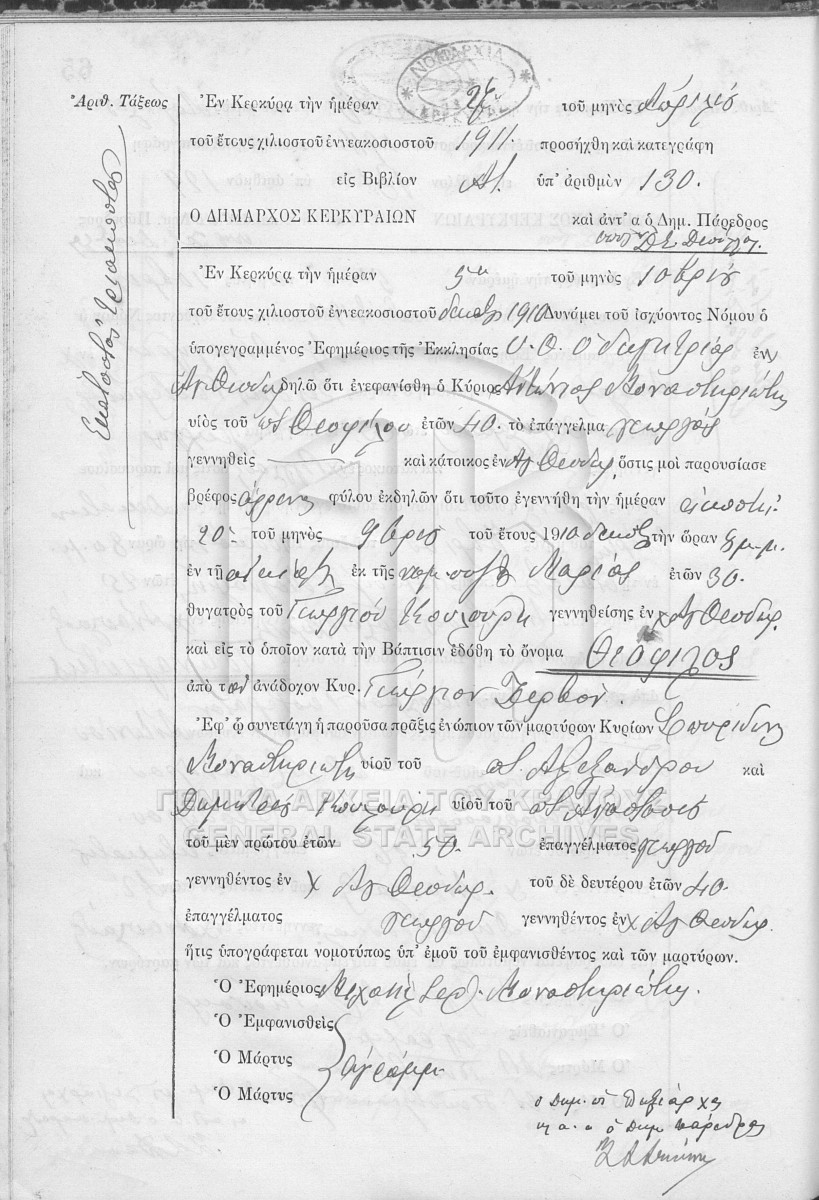 ΝΟΜΑΡΧΙΑ
Ἀριθ. Τάξεως
Ἑκατοστὸς τριακοστός
Ἐν Κερκύρᾳ τὴν ἡμέραν τοῦ μηνὸς Ἀπριλίου
τοῦ ἔτους χιλιοστοῦ ἐννεακοσιοστοῦ 1911. προσήχθη καὶ κατεγράφη
εἰς Βιβλίον Α!. ὑπ' ἀριθμὸν 130.
Ο ΔΗΜΑΡΧΟΣ ΚΕΡΚΥΡΑΙΩΝ καὶ ἀντ' α ὁ Δημ. Πάρεδρος
Ἐν Κερκύρᾳ τὴν ἡμέραν 5η τοῦ μηνὸς 10βρίου
τοῦ ἔτους χιλιοστοῦ ἐννεακοσιοστοῦ δεκάτου 1910 Δυνάμει τοῦ ἰσχύοντος Νόμου ὁ
ὑπογεγραμμένος Ἐφημέριος τῆς Ἐκκλησίας Υ. Θ. Οδηγητρίας ἐν χ
Ἁγ. Θεοδώρ δηλῶ ὅτι ἐνεφανίσθη ὁ Κύριος Ἀντώνιος Μοναστηριώτης
υἱὸς τοῦ ποτ Θεοφίλου ἐτῶν 40. τὸ ἐπάγγελμα γεωργός
γεννηθεὶς καὶ κάτοικος ἐν Αγ Θεοδώρ, ὅστις μοὶ παρουσίασε
βρέφος ἄρρενος φύλου ἐκδηλῶν ὅτι τοῦτο ἐγεννήθη τὴν ἡμέραν εἰκοστή:
20 τοῦ μηνὸς 9βρίου τοῦ ἔτους 1910 δεκάτου τὴν ὥραν 8 μ.μ.
ἐν τῇ οἰκίᾳ ἐκ τῆς νομ. συζ Μαρίας ἐτῶν 30.
θυγατρὸς τοῦ Γεωργίου Κουλούρη γεννηθείσης ἐν χ Αγ Θεοδώρ.
καὶ εἰς τὸ ὁποῖον κατὰ τὴν Βάπτισιν ἐδόθη τὸ ὄνομα Θεόφιλος
ἀπὸ τὸν ἀνάδοχον Κυρ. Γεώργιον
Ἐφ' ᾧ συνετάγη ἡ παροῦσα πρᾶξις ἐνώπιον τῶν μαρτύρων Κυρίων Σπυρίδων
Μοναστηριώτη υἱοῦ τοῦ ποτ Ἀλεξάνδρου καὶ
Δημητρίου Κουλούρη υἱοῦ τοῦ ποτ Ἀναστασίου
ΓΕΝΙΚΑ ΑΡΧΕΙΑ ΤΟΥ ΚΡΑΤΟΥΣ
GENERAL STATE ARCHIVES
τοῦ μὲν πρώτου ἐτῶν 50. ἐπαγγέλματος γεωργοῦ
γεννηθέντος ἐν χ Αγ Θεοδώρ. τοῦ δὲ δευτέρου ἐτῶν 40.
ἐπαγγέλματος γεωργοῦ γεννηθέντος ἐν χ Αγ Θεοδώρ.
ἥτις ὑπογράφεται νομοτύπως ὑπ' ἐμοῦ τοῦ ἐμφανισθέντος καὶ τῶν μαρτύρων.
Ὁ Ἐφημέριος Μιχαὴλ Ιερ. Μοναστηριώτης.
Ὁ Ἐμφανισθεὶς
Ὁ Μάρτυς ἀγράμμ
Ὁ Μάρτυς
ὁ Δημ. πάρεδρος